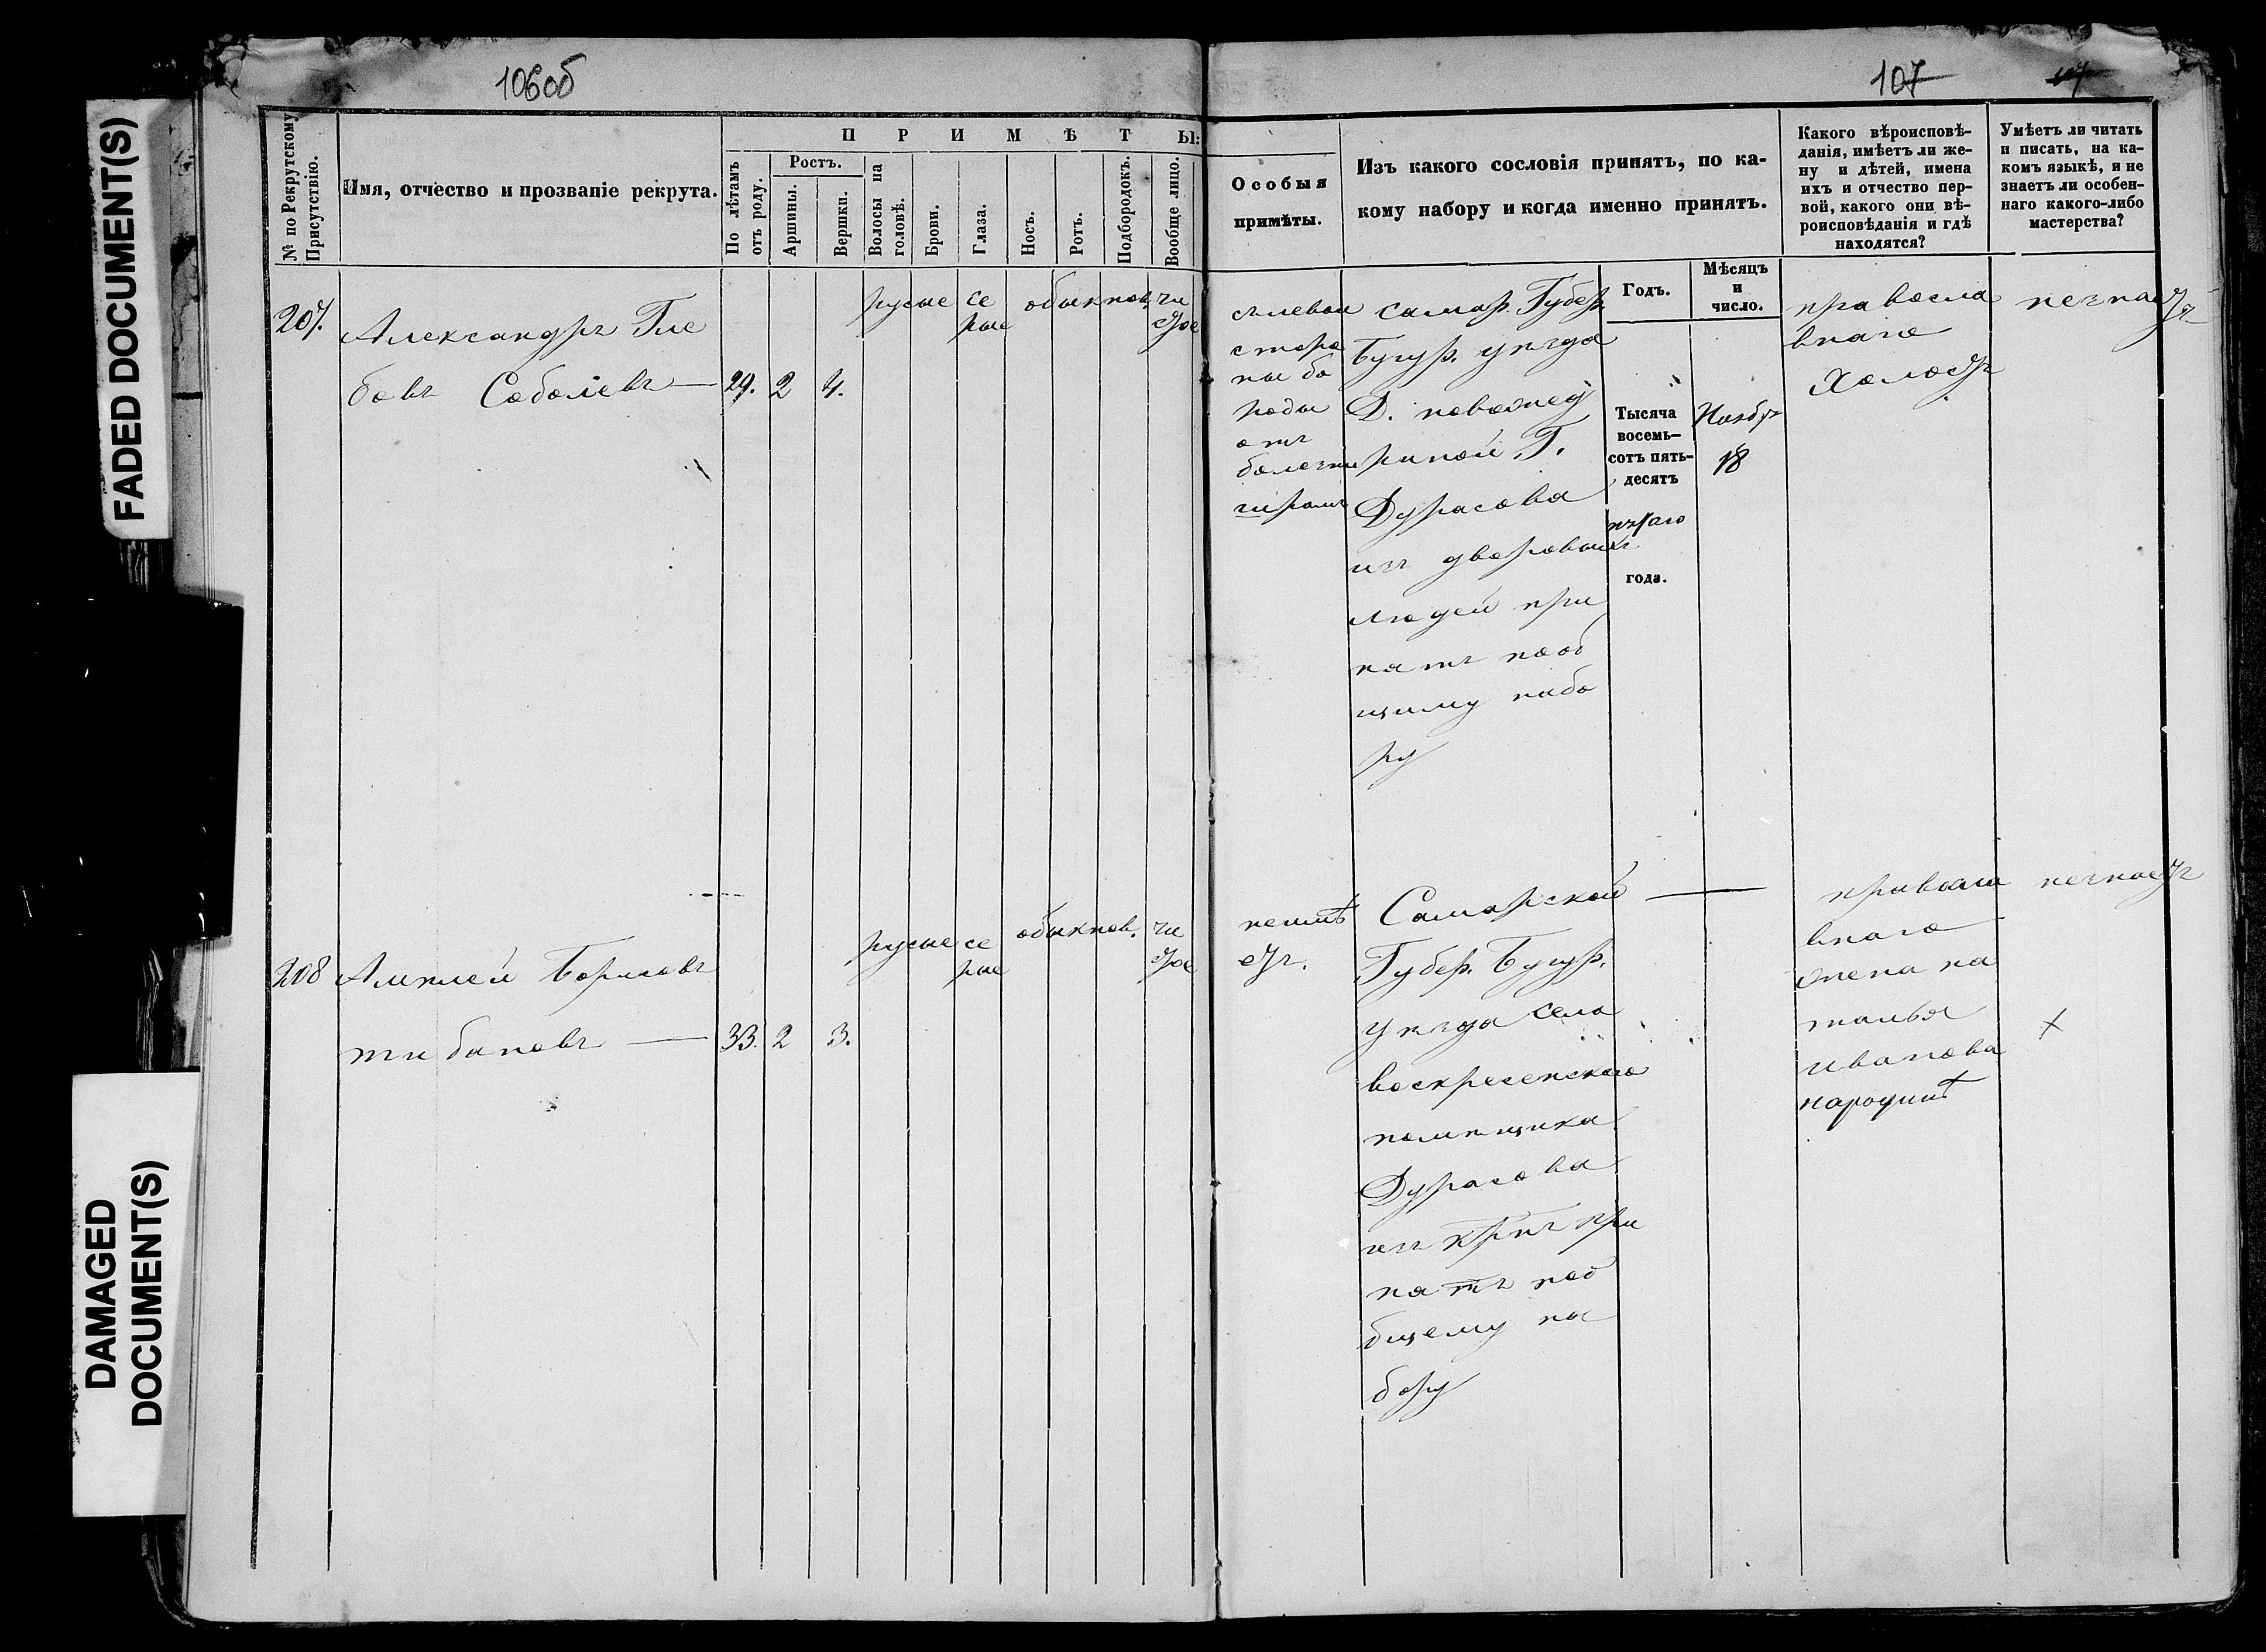 106об
107
FADED DOCUMENT(S)
DAMAGED
DOCUMENT(S)
№ по Рекрутскому
Присутствію.
Имя, отчество и прозваніе рекрута.
ПРИМѢТЫ:
По лѣтамъ
отъ роду.
Ростъ.
Аршины.
Вершки.
Волосы на
головѣ.
Брови.
Глаза.
Носъ.
Ротъ.
Подбородокъ.
Вообще лицо.
Особыя
примѣты.
Изъ какого сословія принятъ, по ка-
кому набору и когда именно принятъ.
Какого вѣроисповѣ-
данія, имѣетъ ли же-
ну и дѣтей, имена
ихъ и отчество пер-
вой, какого они вѣ-
роисповѣданія и гдѣ
находятся?
Умѣетъ ли читать
и писать, на ка-
комъ языкѣ, и не
знаетъ ли особен-
наго какого-либо
мастерства?
Годъ.
Мѣсяцъ
и
число.
207.
Александръ Гле
бовъ Соболевъ —
29. 2 4.
русые
се
рые
обыкнов.
чи
стое
слевой
сторо
ны бо
роды
отъ
болезни
шрамъ
самар. Губер.
Бугур. уѣзда
Д.
Г.
Дурасова
изъ дворовыхъ
людей при
нятъ по об
щему набо
ру
Тысяча
восемь-
сотъ пять-
десятъ
года.
Ноябр
18
правосла
внаго
Холостъ
незнаетъ
208 Алексей Борисовъ
33. 2 3.
русые
се
рые
обыкнов.
чи
стое
неимѣ
етъ.
Самарской
Губер. Бугур.
уѣзда села
воскресенского
помѣщика
Дурасова
изъ крѣпъ при
нятъ поо
бщему на
бору
—
правосла
внаго
жена на
талья
иванова
народинѣ
незнаетъ